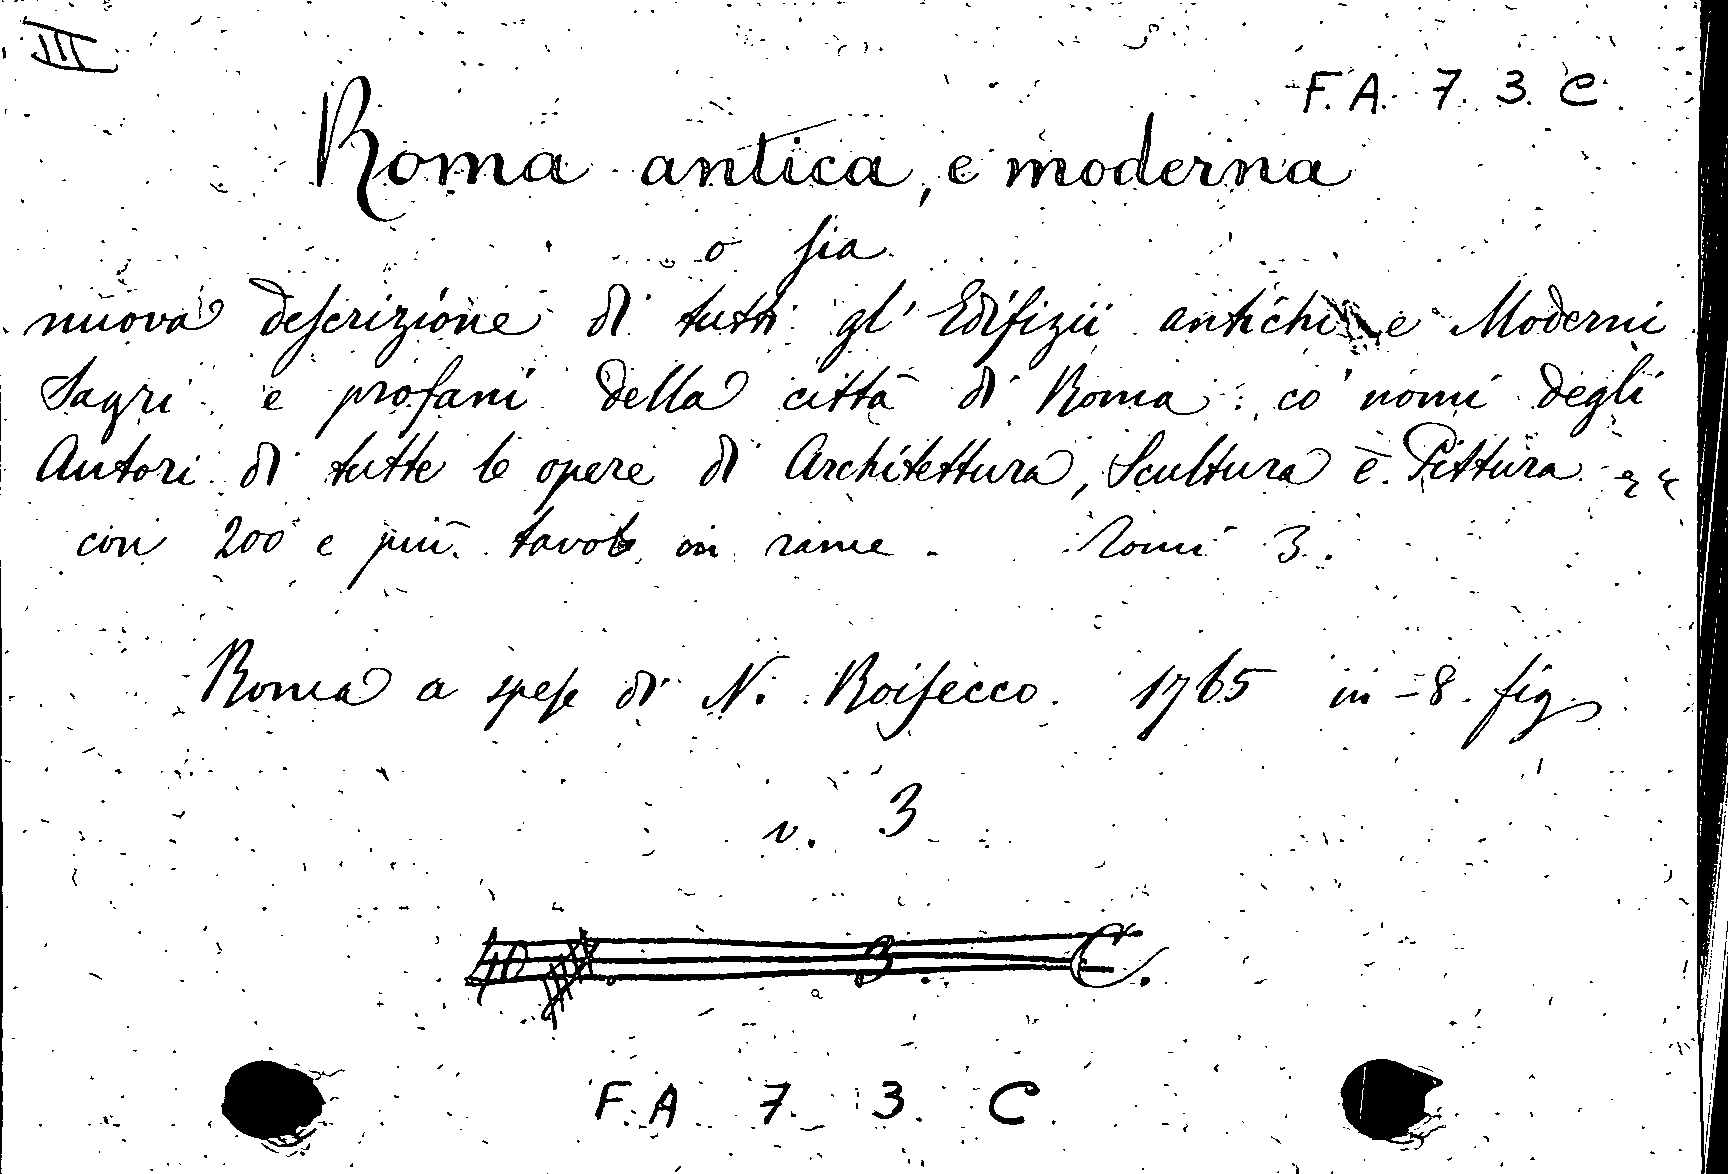 III
F. A. 7. 3. C.
Roma antica, e moderna
o sia
nuova descrizione di tutti gl' Edifizii antichi e Moderni
Sagri e profani della città di Roma: co' nomi degli
Autori di tutte le opere di Architettura, Scultura e Pittura
con 200 e più tavole in rame. Tomi 3.
Roma a spese di N. Roisecco. 1765 in-8. fig
v. 3
3. C.
F. A 7. 3. C